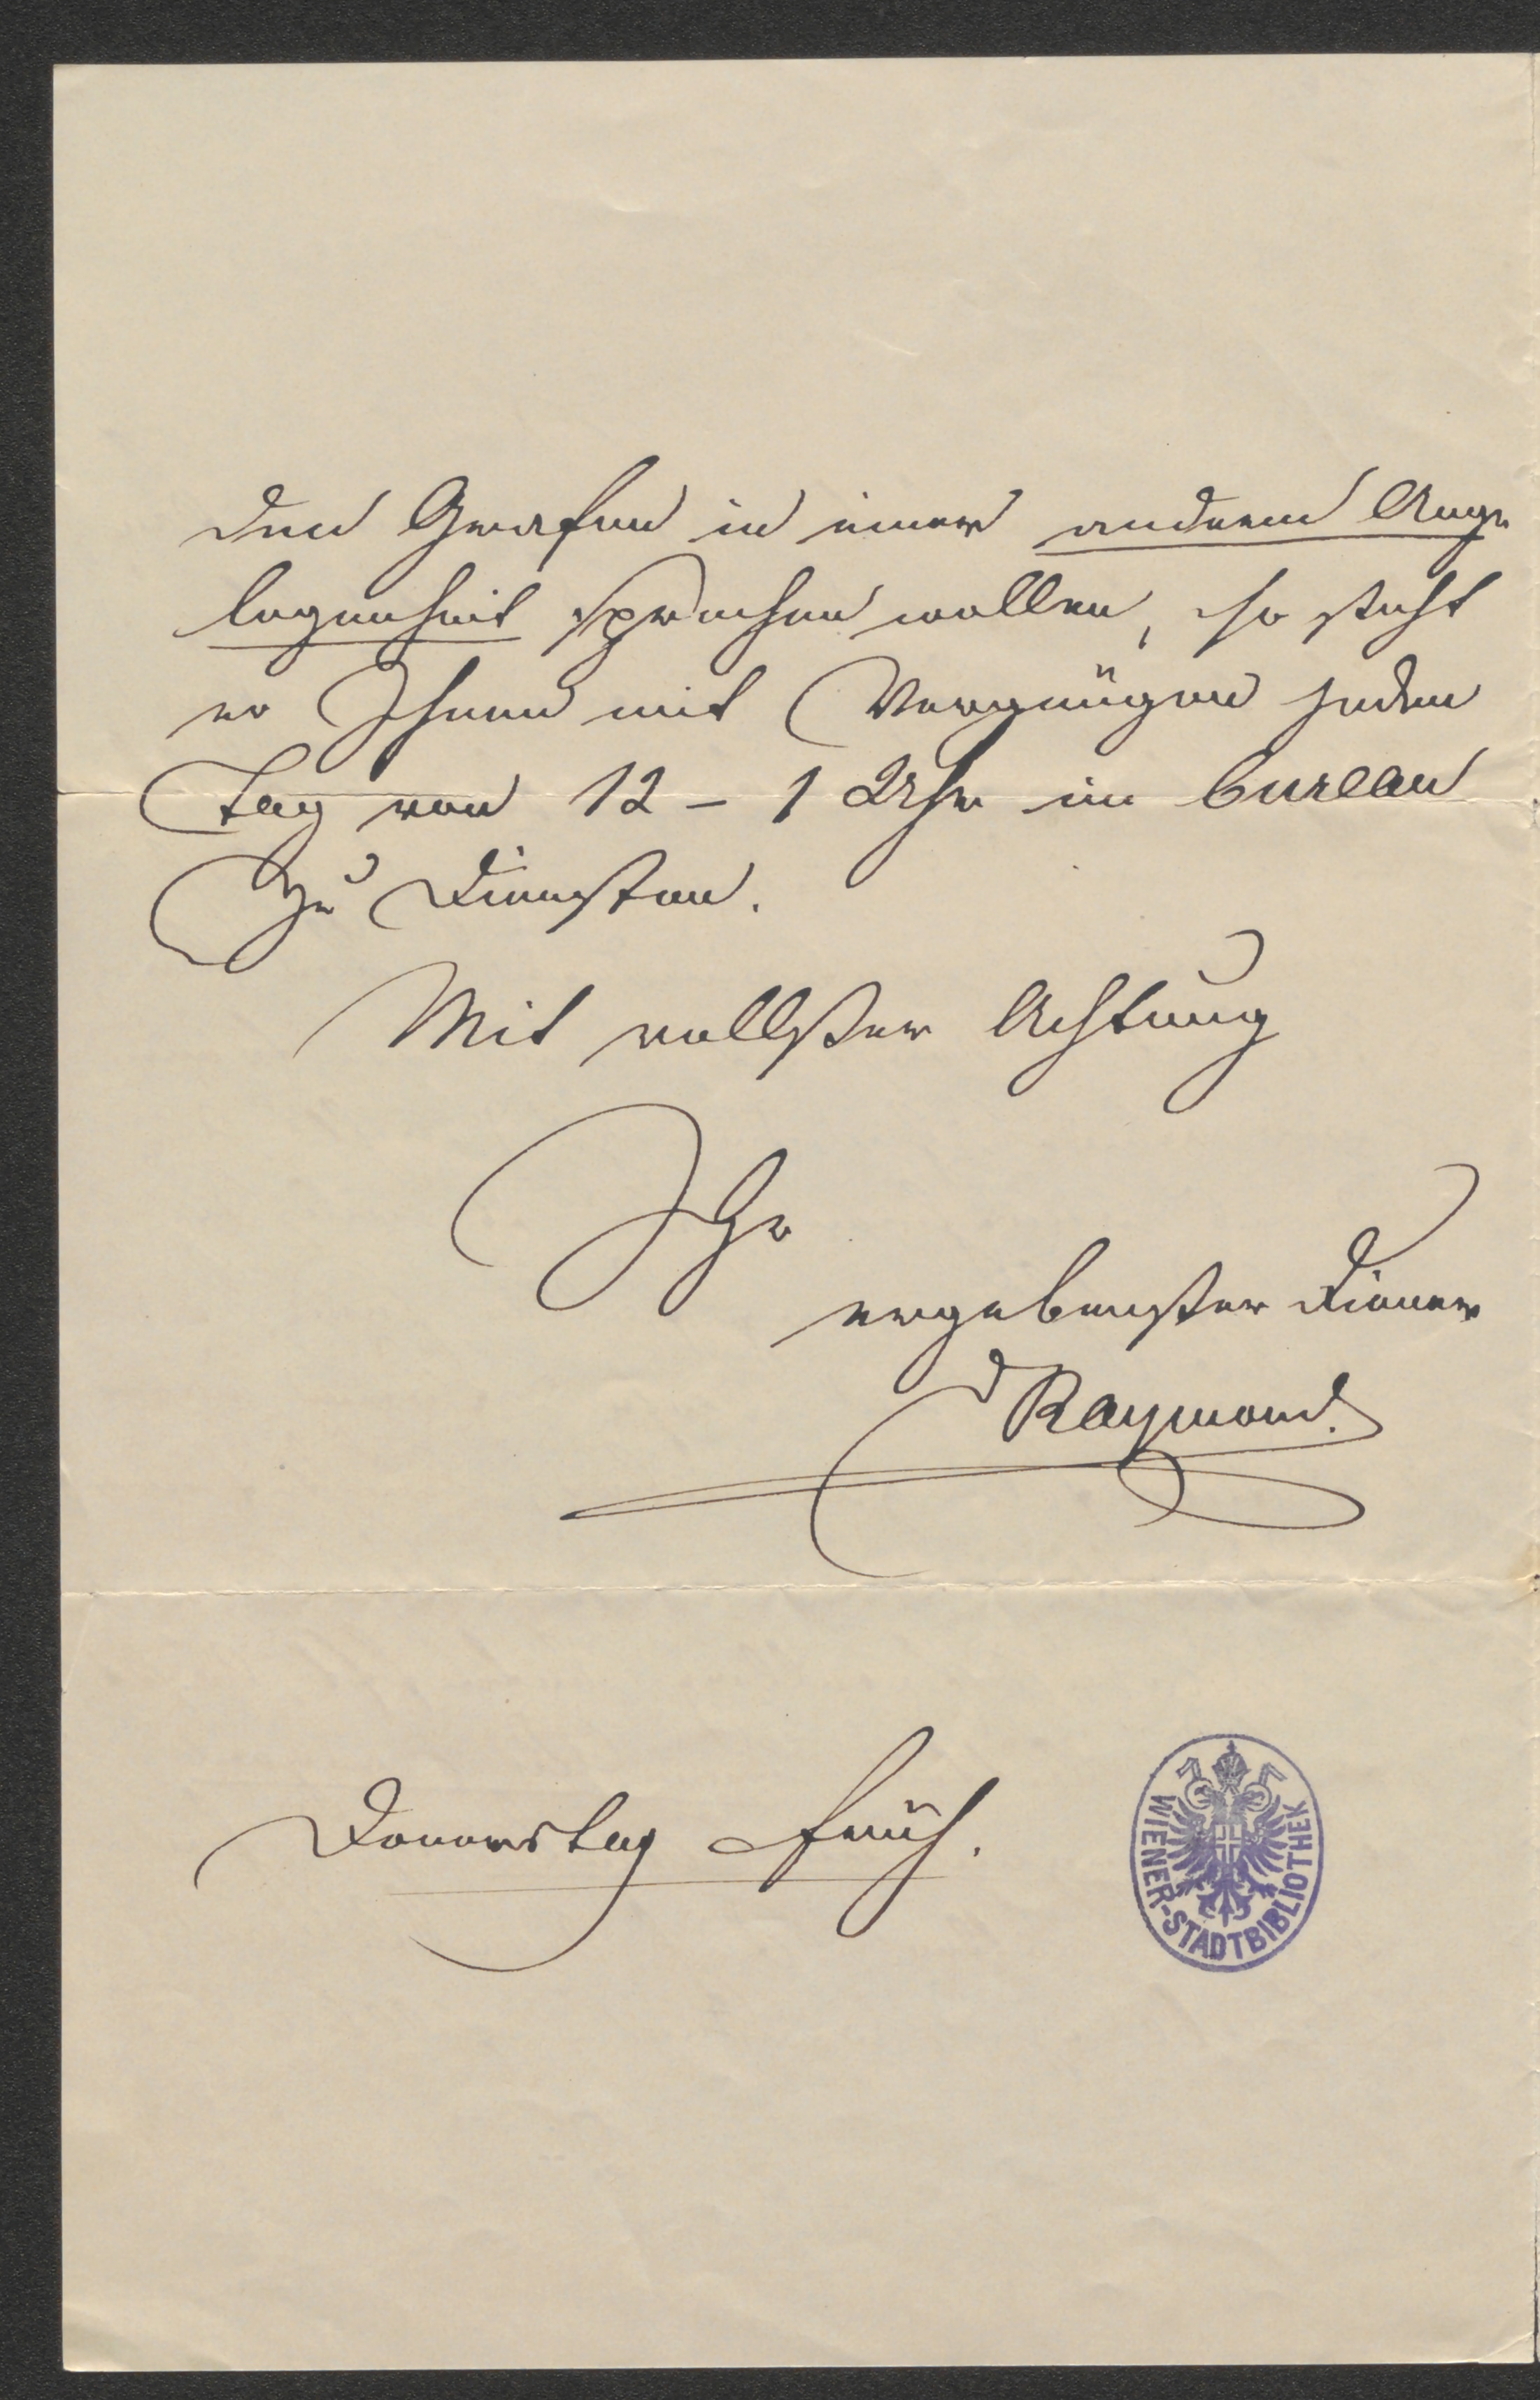 den Grafen in einer andern Ange
legenheit sprechen wollen, so steht
er Ihnen mit Vergnügen jeden
Tag von 12 – 1 Uhr im bureau
zu Diensten.
Mit vollster Achtung
Ihr
ergebenster Diener
Raymond.
Donnerstag früh.
WIENER-STADTBIBLIOTHEK